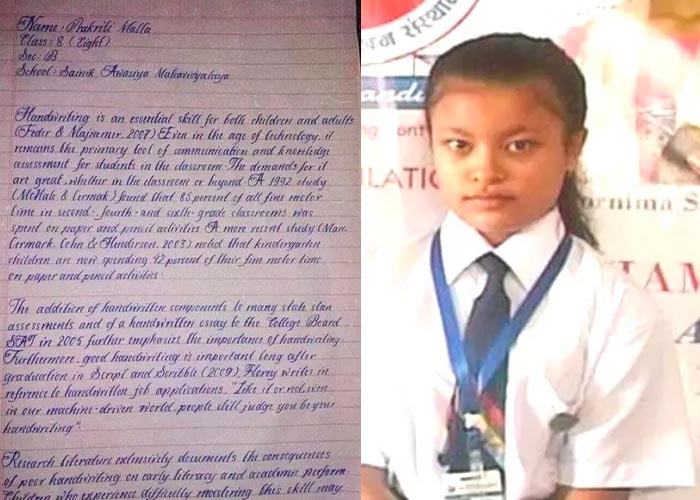 Name: Prakriti Malla
Class: 8 (Eight)
Sec: B
School: Sainik Awasiya Mahavidyalaya
Handwriting is an essential skill for both children and adults
(Feder & Majnemer, 2007) Even in the age of technology, it
remains the primary tool of communication and knowledge
assessment for students in the classroom. The demands for it
are great, whether in the classroom or beyond. A 1992 study
(McHale & Cermak) found that 85 percent of all fine motor
time in second-, fourth- and sixth-grade classrooms was
spent on paper and pencil activities. A more recent study (Marr,
Cermark, Cohn & Henderson, 2003) noted that kindergarten
children are now spending 42 percent of their fine motor time
on paper and pencil activities.
The addition of handwritten components to many state stan
assessments and of a handwritten essay to the College Board
SAT in 2005 further emphasize the importance of handwriting
Furthermore, good handwriting is important long after
graduation in Script and Scribble (2009), Florey writes in
reference to handwritten job applications, "Like it or not, even
in our machine-driven world, people still judge you by your
handwriting".
Research literature extensively documents the consequences
of poor handwriting on early literacy and academic perform-
Children who experience difficulty mastering this skill may
संस्थान